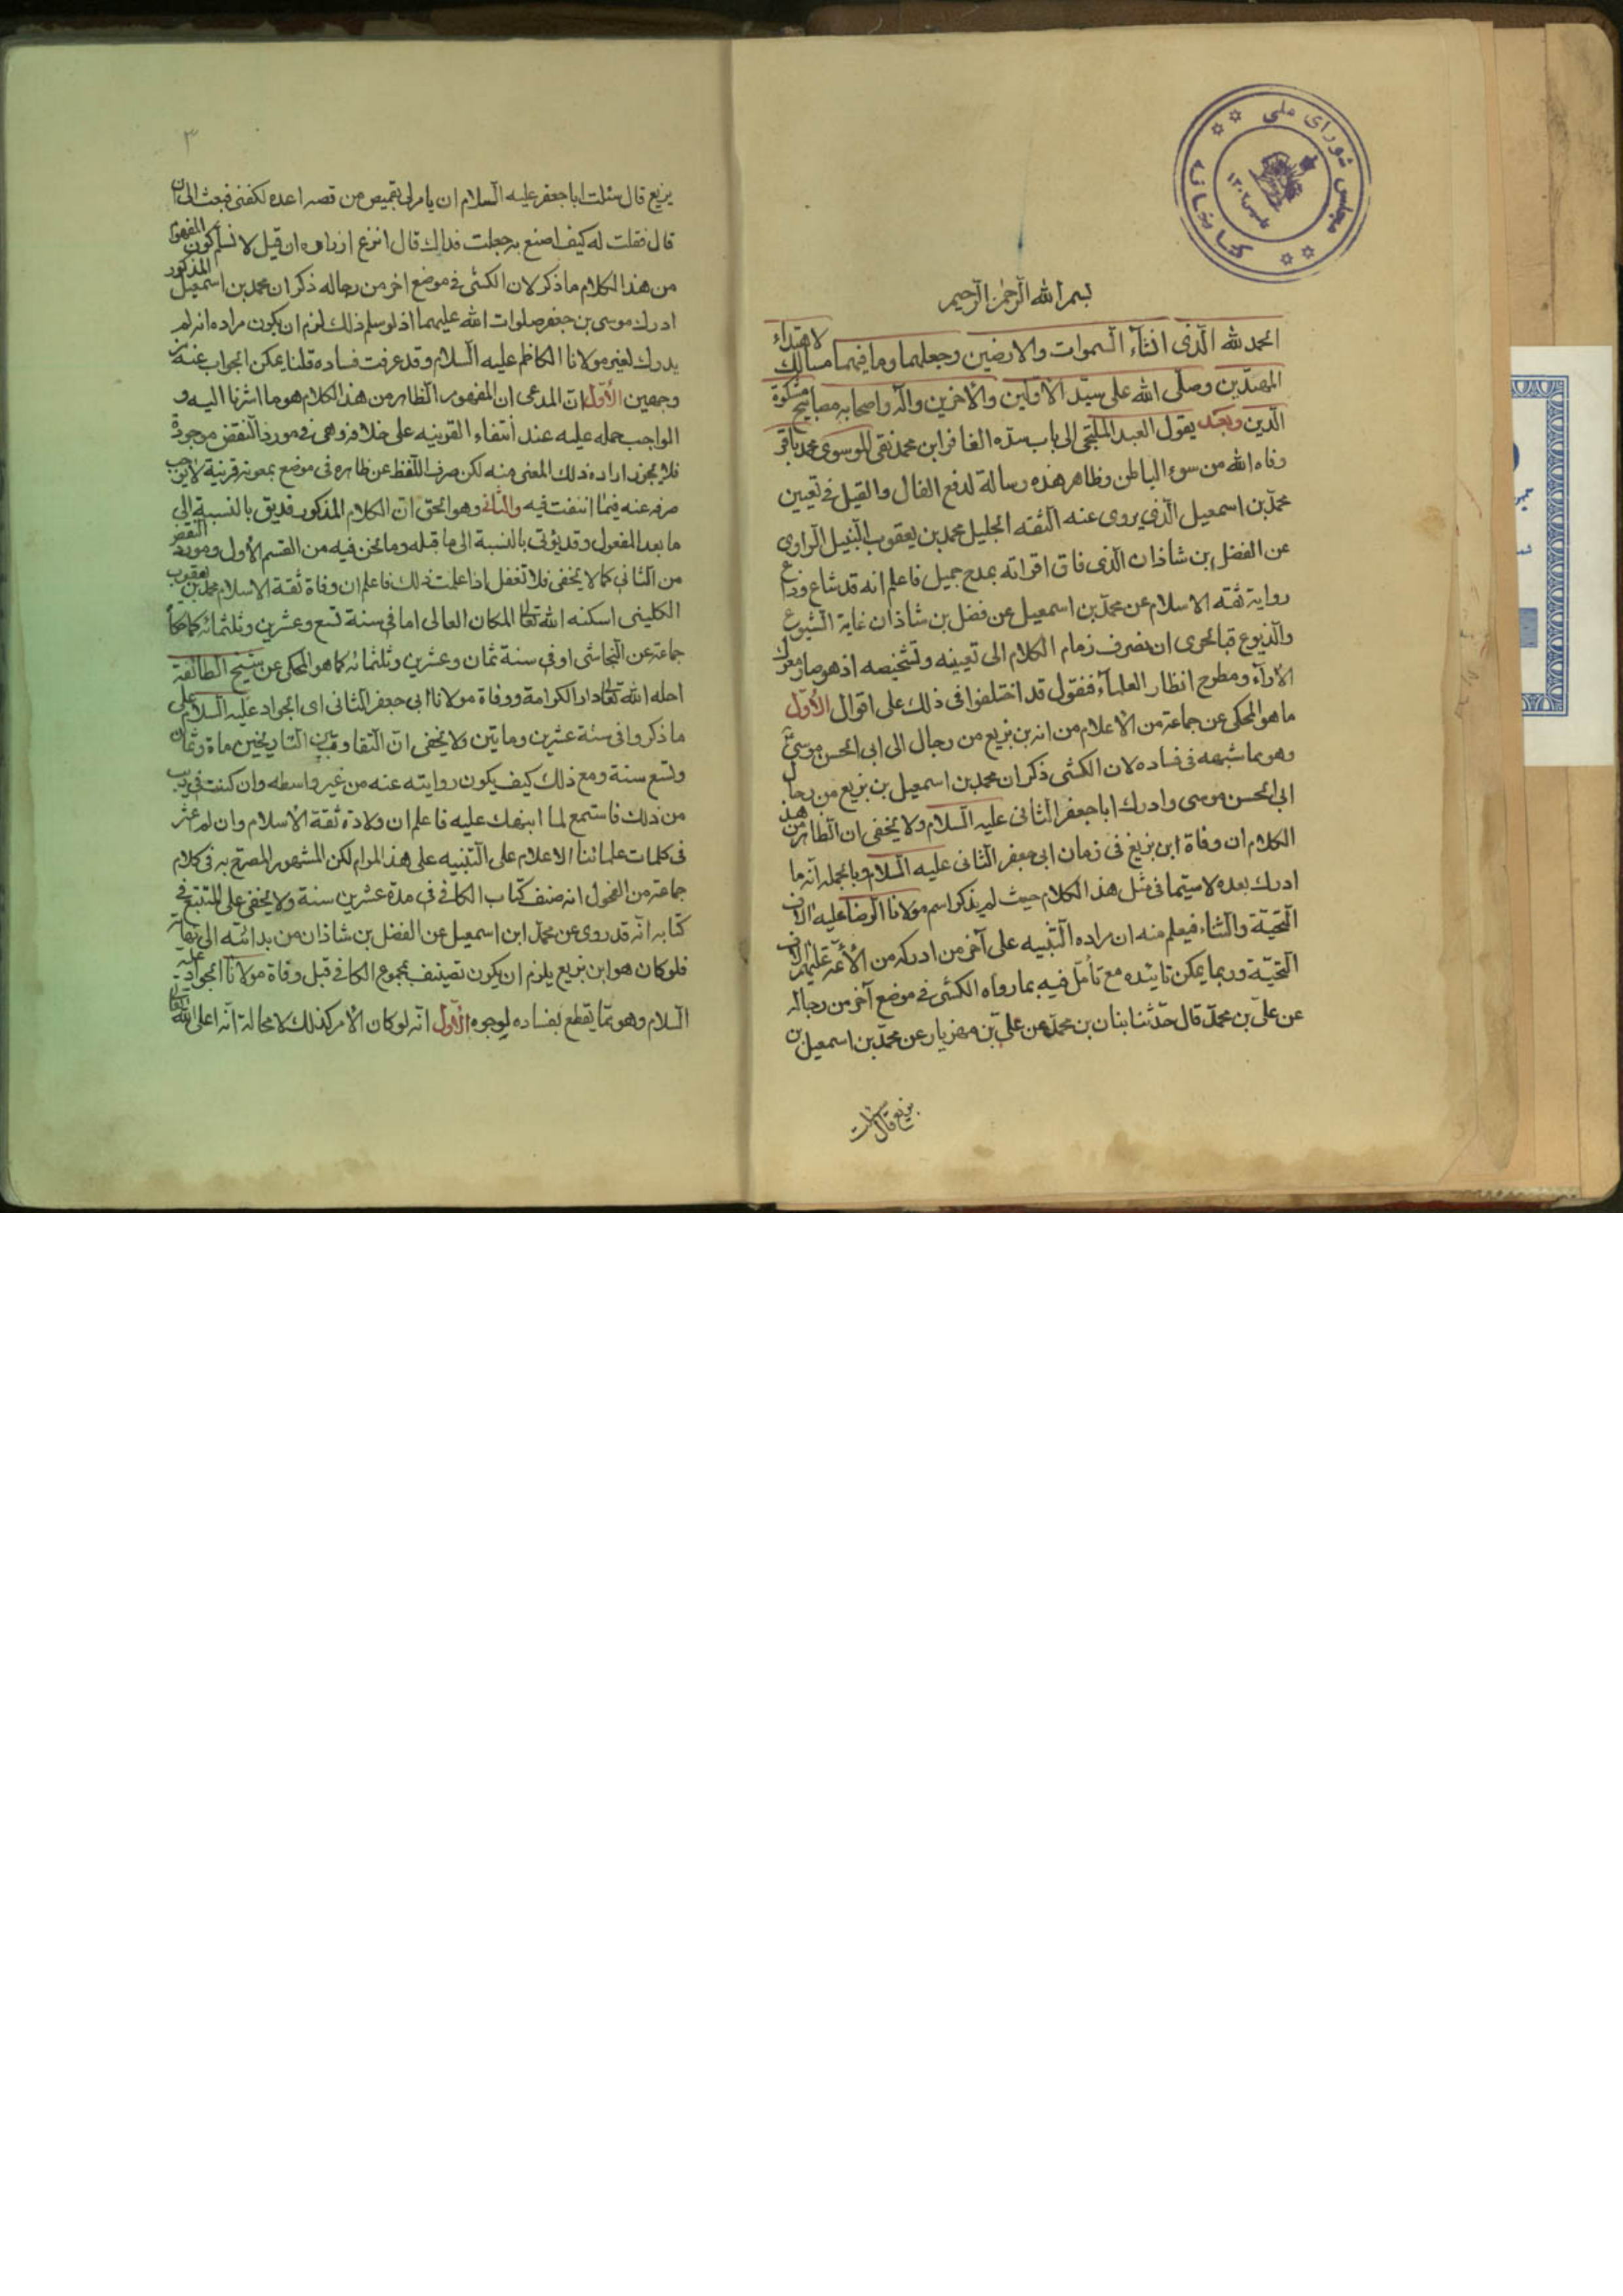 مجلس شورای ملی
کتابخانه
بسم الله الرحمن الرحيم
الحمد لله الّذى انشاء السموات والارضين وجعلهما وما فيهما مسالك لاهتداء
المهتدين وصلّى الله على سيّد الاوّلين والآخرين وآله واصحابه مصابيح مشكوة
الدّين وبعد يقول العبد الملتجى الى باب سدّه الغافر ابن محمد نقى الموسوى محمد باقر
وقاه الله من سوء الباطن وظاهر هذه رسالة لدفع القال والقيل فى تعيين
محمّد بن اسمعيل الّذى يروى عنه الثقه الجليل محمد بن يعقوب النبيل الراوى
عن الفضل بن شاذان الّذى فاق اقرانه بمدح جميل فاعلم انه قد شاع وذاع
رواية ثقه الاسلام عن محمّد بن اسمعيل عن فضل بن شاذان غاية الشيوع
والذيوع فبالحرى ان نصرف زمام الكلام الى تعيينه وتشخيصه اذ هو صار معرك
الآراء ومطرح انظار العلمآء فنقول قد اختلفوا فى ذلك على اقوال الأوّل
ما هو المحكى عن جماعة من الاعلام من انه بن بزيع من رجال الى ابى الحسن موسى
وهو مما شبهه فى فساده لان الكشى ذكر ان محمد بن اسمعيل بن بزيع من رجال
ابى الحسن موسى وادرك ابا جعفر الثانى عليه السلام ولا يخفى ان الظاهر من هذا
الكلام ان وفاة ابن بزيع فى زمان ابى جعفر الثانى عليه السلام وبالجمله انّه ما
ادرك بعده لا سيّما فى مثل هذا الكلام حيث لم يذكر اسم مولانا الرضا عليه الاف
التحيّة والثناء فيعلم منه ان مراده التنبيه على آخر من ادركه من الأئمّة عليهم الاف
التحيّة وربما يمكن تاييده مع تأمّل فيه بما رواه الكشى فى موضع آخر من رجاله
عن علىّ بن محمّد قال حدّثنا بنان بن محمّد عن علىّ بن مهزيار عن محمّد بن اسمعيل بن
بزيع قال سئلت
٣
بزيع قال سئلت ابا جعفر عليه السلام ان يامر لى بقميص من قمصه اعده لكفنى فبعث الى ان
قال فقلت له كيف اصنع به جعلت فداك قال انزع ازراره ان قيل لا نسلّم كون المفهوم
من هذا الكلام ما ذكر لان الكشى فى موضع اخر من رجاله ذكر ان محمد بن اسمعيل المذكور
ادرك موسى بن جعفر صلوات الله عليهما اذ لو سلم ذلك لزم ان يكون مراده انه لم
يدرك لغير مولانا الكاظم عليه السلام وقد عرفت فساده قلنا يمكن الجواب عنه من
وجهين الأوّل انّ المدعى ان المفهوم الظاهر من هذا الكلام هو ما اشرنا اليه و
الواجب حمله عليه عند انتفاء القرينه على خلافه وهى فى مورد النقض موجودة
فلا يجوز اراده ذلك المعنى منه لكن صرف اللفظ عن ظاهره فى موضع بمعونة قرينة لا يوجب
صرفه عنه فيما انتفت فيه والثانى وهو الحق انّ الكلام المذكور قد يق بالنسبة الى
ما بعد المفعول وقد يؤتى بالنسبة الى ما قبله وما نحن فيه من القسم الاول ومورد النقض
من الثانى كما لا يخفى فلا تغفل اذا علمت ذلك فاعلم ان وفاة ثقة الاسلام محمد بن يعقوب
الكلينى اسكنه الله تعالى المكان العالى اما فى سنة تسع وعشرين وثلثمائه كما حكاه
جماعة عن النجاشى او فى سنة ثمان وعشرين وثلثمائه كما هو المحكى عن شيخ الطائفة
احله الله تعالى دار الكرامة ووفاة مولانا ابى جعفر الثانى اى الجواد عليه السلام على
ما ذكروا فى سنة عشرين ومايتين ولا يخفى انّ التفاوت بين التاريخين مأة وثمان
وتسع سنة ومع ذلك كيف يكون روايته عنه من غير واسطه وان كنت فى ريب
من ذلك فاستمع لما انبهك عليه فاعلم ان ولادة ثقة الاسلام وان لم نعثر
فى كلمات علمائنا الاعلام على التنبيه على هذا المرام لكن المشهور المصرّح به فى كلام
جماعة من الفحول انه صنف كتاب الكافى فى مدة عشرين سنة ولا يخفى على المتتبع فى
كتابه انّه قد روى عن محمّد ابن اسمعيل عن الفضل بن شاذان من بدائته الى نهايته
فلو كان هو ابن بزيع يلزم ان يكون تصنيف مجموع الكافى قبل وفاة مولانا الجواد عليه
السلام وهو ممّا يقطع بفساده لوجوه الأوّل انّه لو كان الأمر كذلك لا محالة انّه اعلى الله